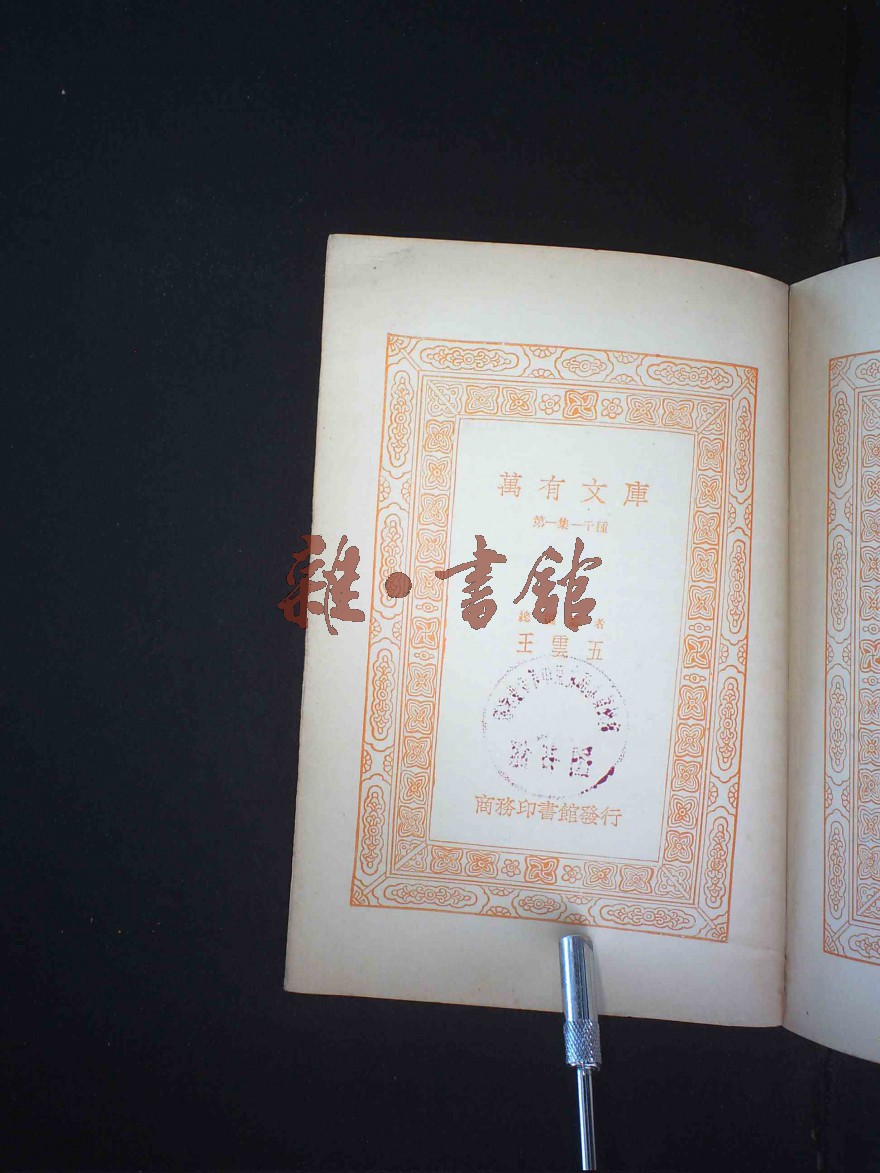 萬有文庫
第一集一千種
雜·書館
總 者
王雲五
商務印書館發行